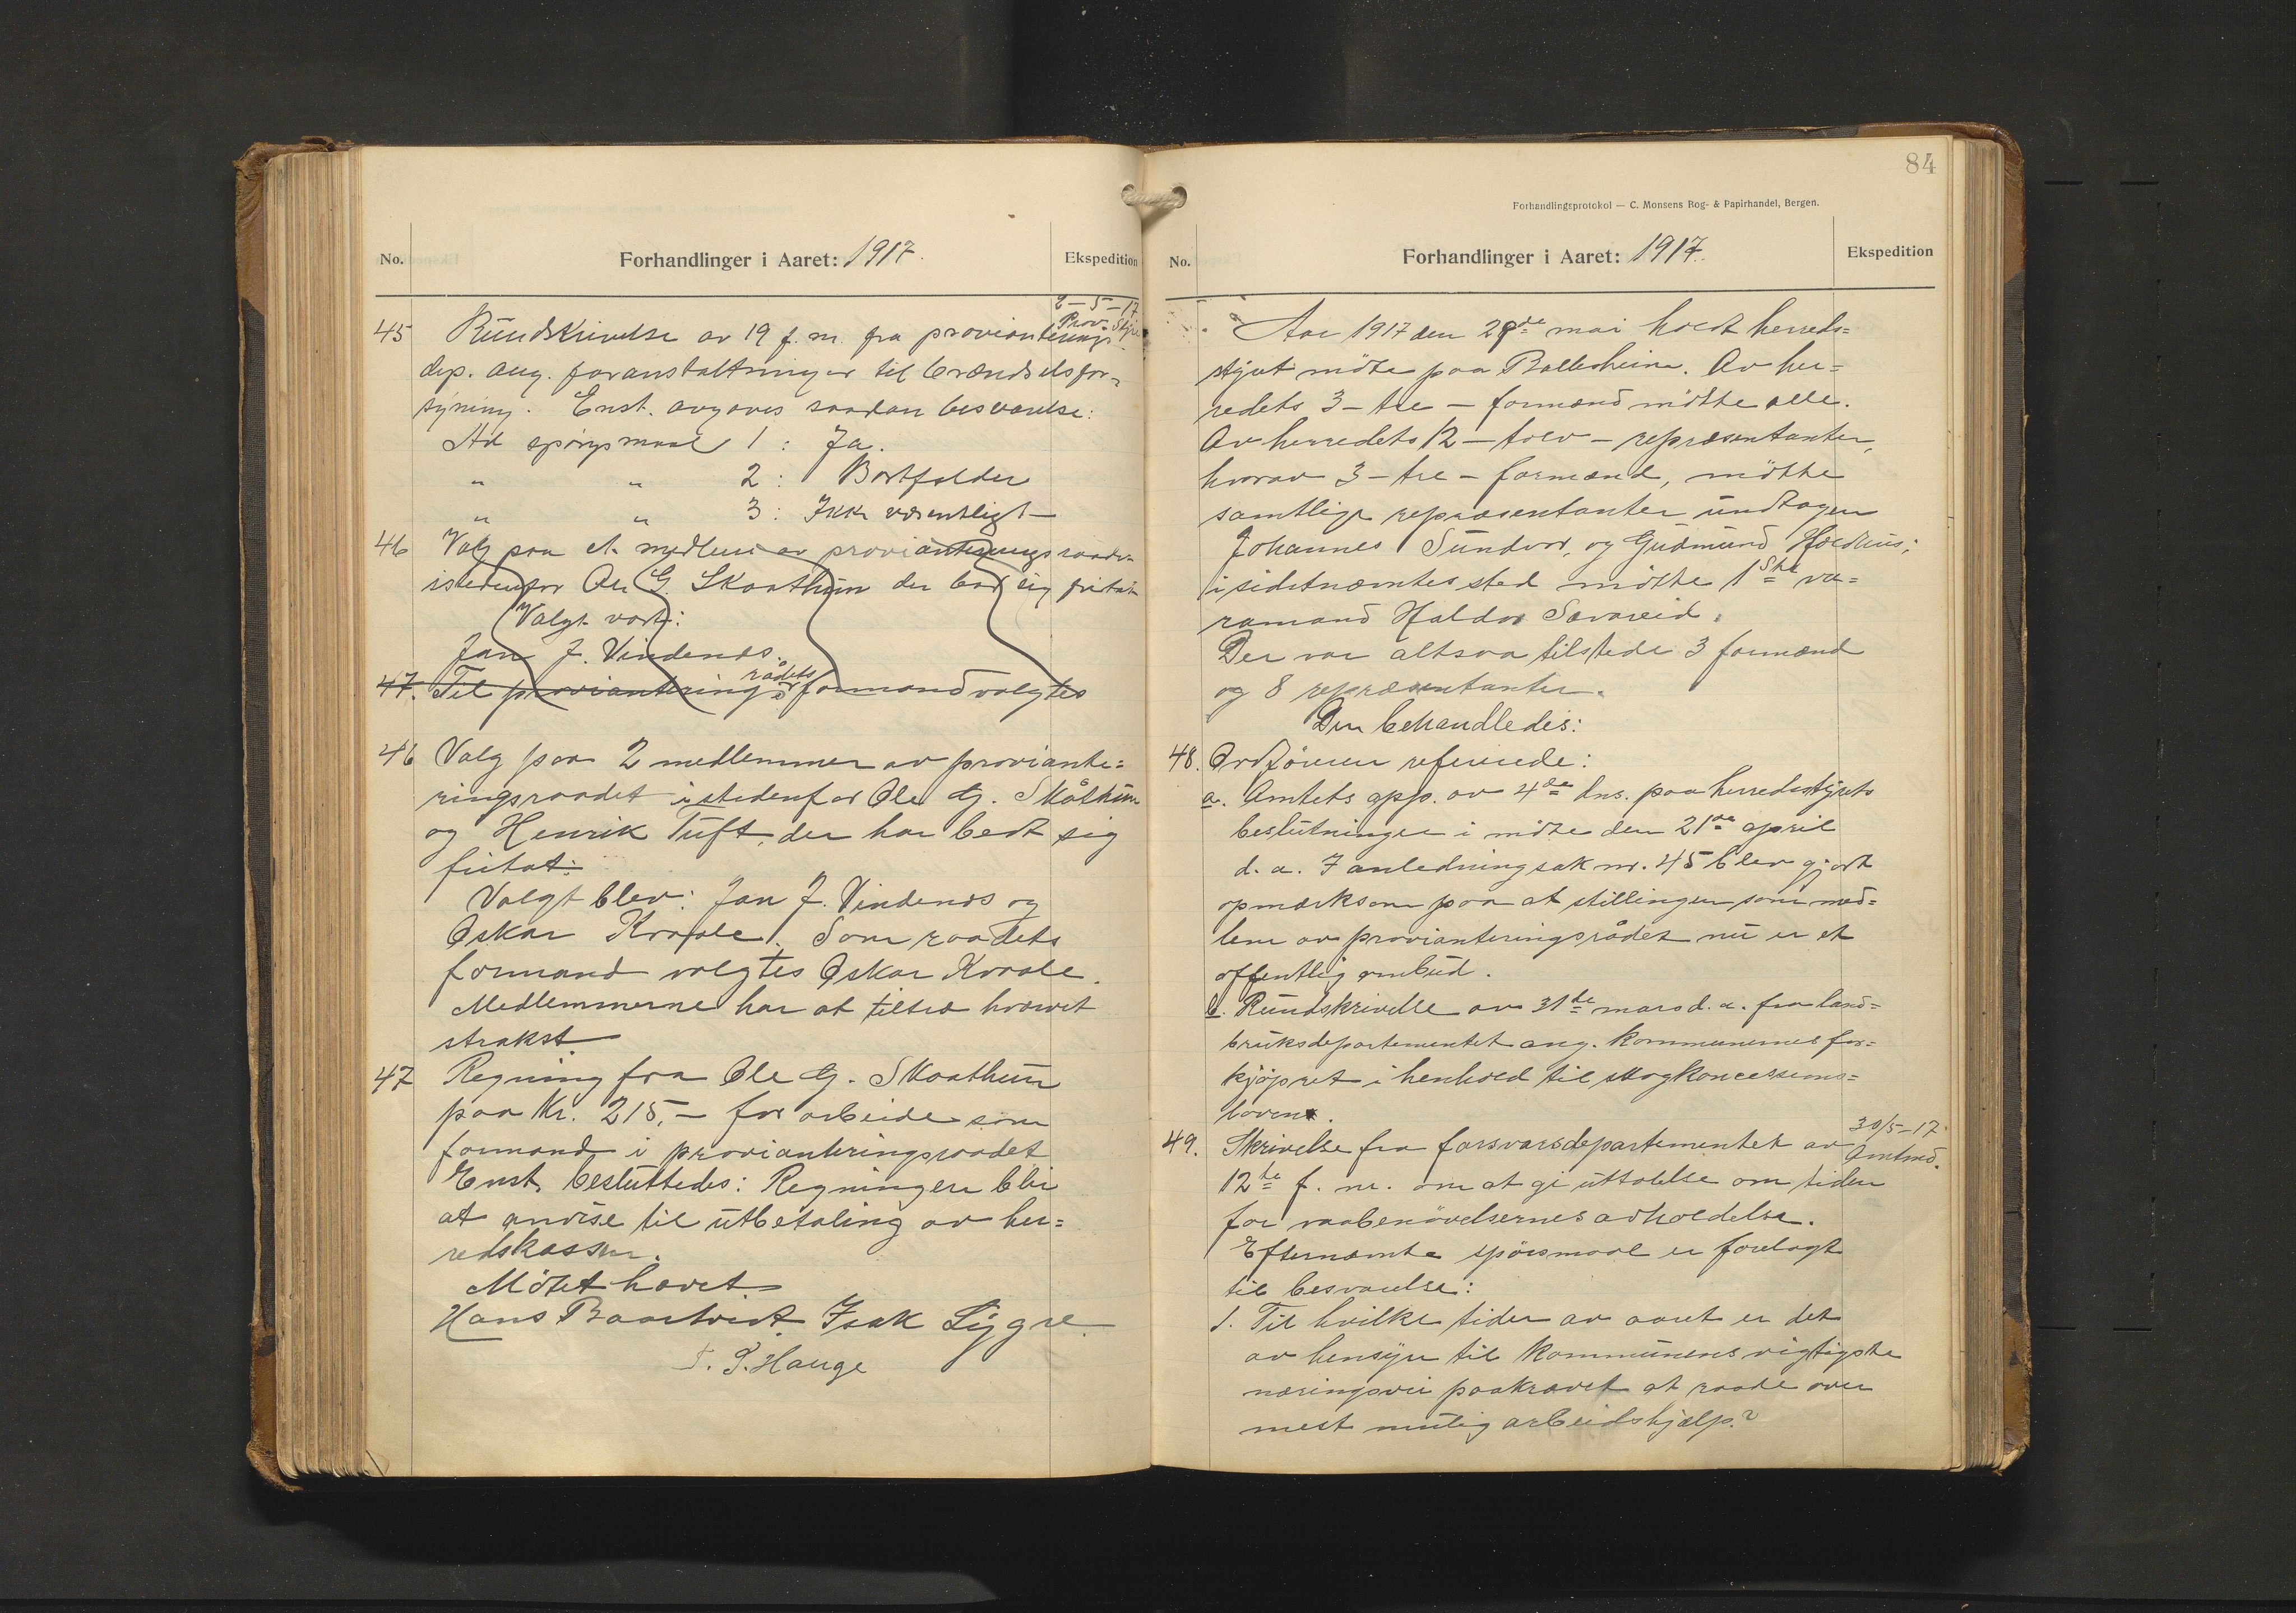 No.
Forhandlinger i Aaret: 1917.
Ekspedition
2-5-17
Prov. Styre
45 Rundskrivelse av 19 f. m. fra provianterings-
dep. ang. foranstaltninger til brændselsfor-
syning. Enst. avgaves saadan besvarelse:
Ad spörgsmaal 1: Ja.
" " 2: Bortfalder
" " 3: Ikke væsentligt
46 Valg paa et medlem av provianteringsraadet
istedenfor Ole G. Skaathun der bad sig fritat
Valgt vart:
Jan J. Vindenes.
47. Til provianteringsrådets formand valgtes
46 Valg paa 2 medlemmer av proviante=
ringsraadet istedenfor Ole G. Skåthun
og Henrik Tuft, der har bedt sig
fritat:
Valgt blev: Jan J. Vindenes og
Oskar Kvaale. Som raadets
formand valgtes Oskar Kvaale.
Medlemmerne har at tiltræ hvervet
strakst
47 Regning fra Ole G. Skaathun
paa Kr. 215,- for arbeide som
formand i provianteringsraadet
Enst. besluttedes: Regningen blir
at anvise til utbetaling av her=
redskassen.
Mötet hævet
Hans Baartvedt. Isak Lygre.
T. T. Hauge
84
Forhandlingsprotokol — C. Monsens Bog- & Papirhandel, Bergen.
No.
Forhandlinger i Aaret: 1917.
Ekspedition
Aar 1917 den 29de mai holdt herreds=
styret möte paa Ballesheim. Av her=
redets 3 - tre - formænd mötte alle.
Av herredets 12 - tolv - repræsentanter,
hvorav 3 - tre - formænd, mötte
samtlige repræsentanter undtagen
Johannes Sundvor, og Gudmund Holdhus;
i sidstnævntes sted mötte 1ste va=
ramand Haldor Sævareid.
Der var altsaa tilstede 3 formænd
og 8 repræsentanter.
Der behandledes:
48. Ordföreren refererede:
a. Amtets app. av 4de dns. paa herredsstyrets
beslutninger i möte den 21de april
d. a. I anledning sak nr. 45 blev gjort
opmerksom paa at stillingen som med=
lem av provianteringsrådet nu er et
offentlig ombud.
b. Rundskrivelse av 31de mars d. a. fra land=
bruksdepartementet ang. kommunernes for=
kjöpret i henhold til skogkoncessions=
loven.
30/5-17.
Amtmd.
49. Skrivelse fra forsvarsdepartementet av
12te f. m. om at gi uttalelse om tiden
for vaabenövelsernes avholdelse.
Efternævnte spörsmaal er forelagt
til besvarelse:
1. Til hvilke tider av aaret er det
av hensyn til kommunens vigtigste
næringsvei paakrævet at raade over
mest mulig arbeidshjælp?